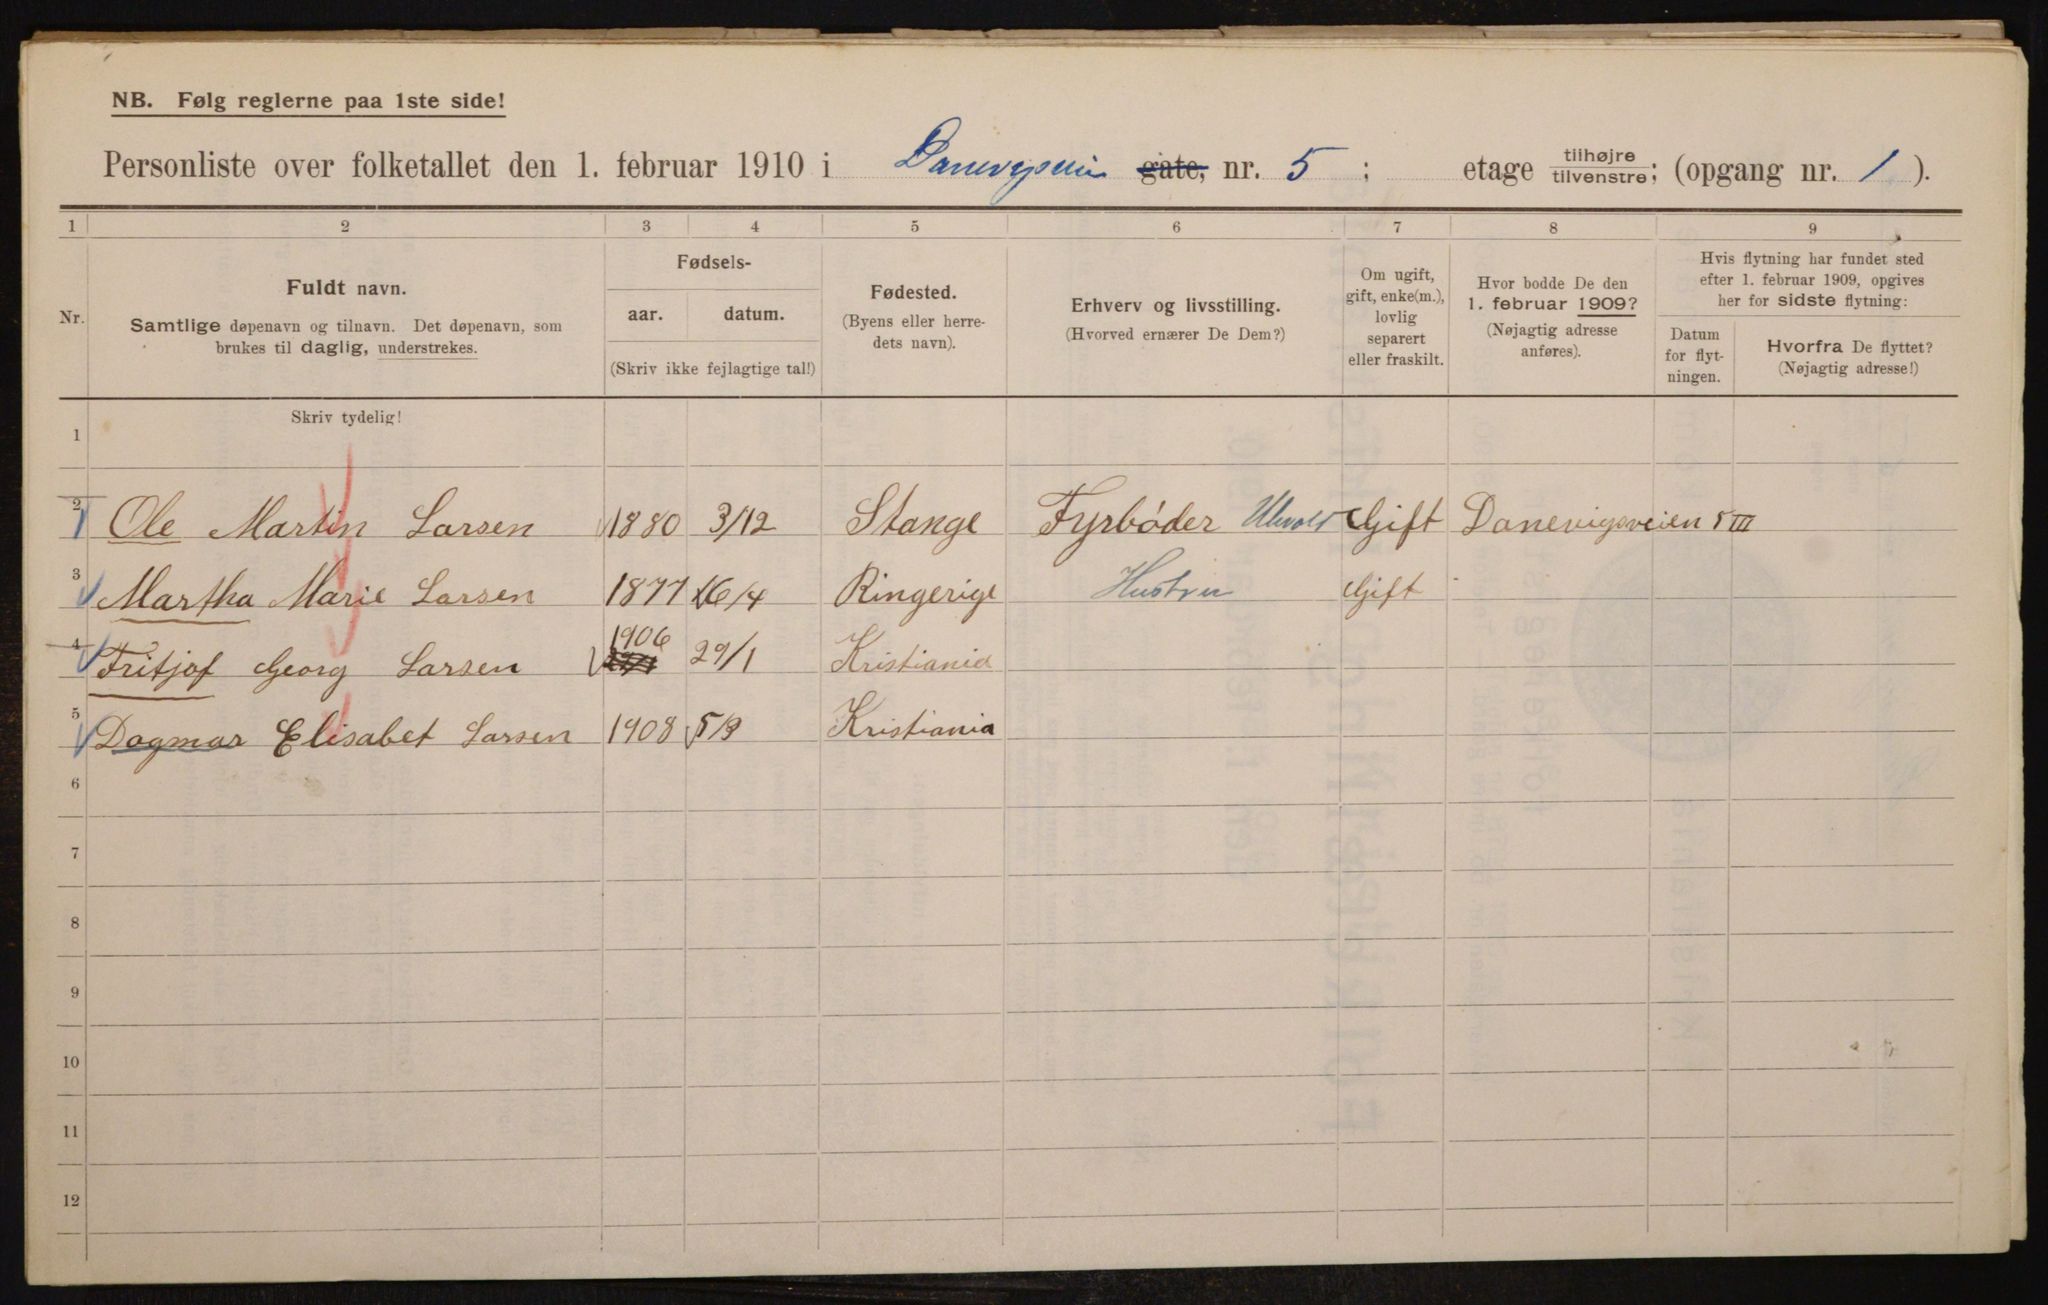 NB. Følg reglerne paa 1ste side!
Personliste over folketallet den 1. februar 1910 i Danevigsveien gate, nr. 5 ; etage tilhøjre tilvenstre; (opgang nr. 1 ).
1 2 3 4 5 6 7 8 9
Nr.
Fuldt navn.
Samtlige døpenavn og tilnavn. Det døpenavn, som
brukes til daglig, understrekes.
Fødsels-
aar. datum.
(Skriv ikke fejlagtige tal!)
Fødested.
(Byens eller herre-
dets navn).
Erhverv og livsstilling.
(Hvorved ernærer De Dem?)
Om ugift,
gift, enke(m.),
lovlig
separert
eller fraskilt.
Hvor bodde De den
1. februar 1909?
(Nøjagtig adresse
anføres).
Hvis flytning har fundet sted
efter 1. februar 1909, opgives
her for sidste flytning:
Datum
for flyt-
ningen.
Hvorfra De flyttet?
(Nøjagtig adresse!)
Skriv tydelig!
1
2 1 Ole Martin Larsen 1880 3/12 Stange Fyrbøder Gift Danevigsveien 5 III
3 Martha Marie Larsen 1877 16/4 Ringerige Hustru Gift
4 Fritjof Georg Larsen 1906 29/1 Kristiania
5 Dagmar Elisabet Larsen 1908 5/3 Kristiania
6
7
8
9
10
11
12